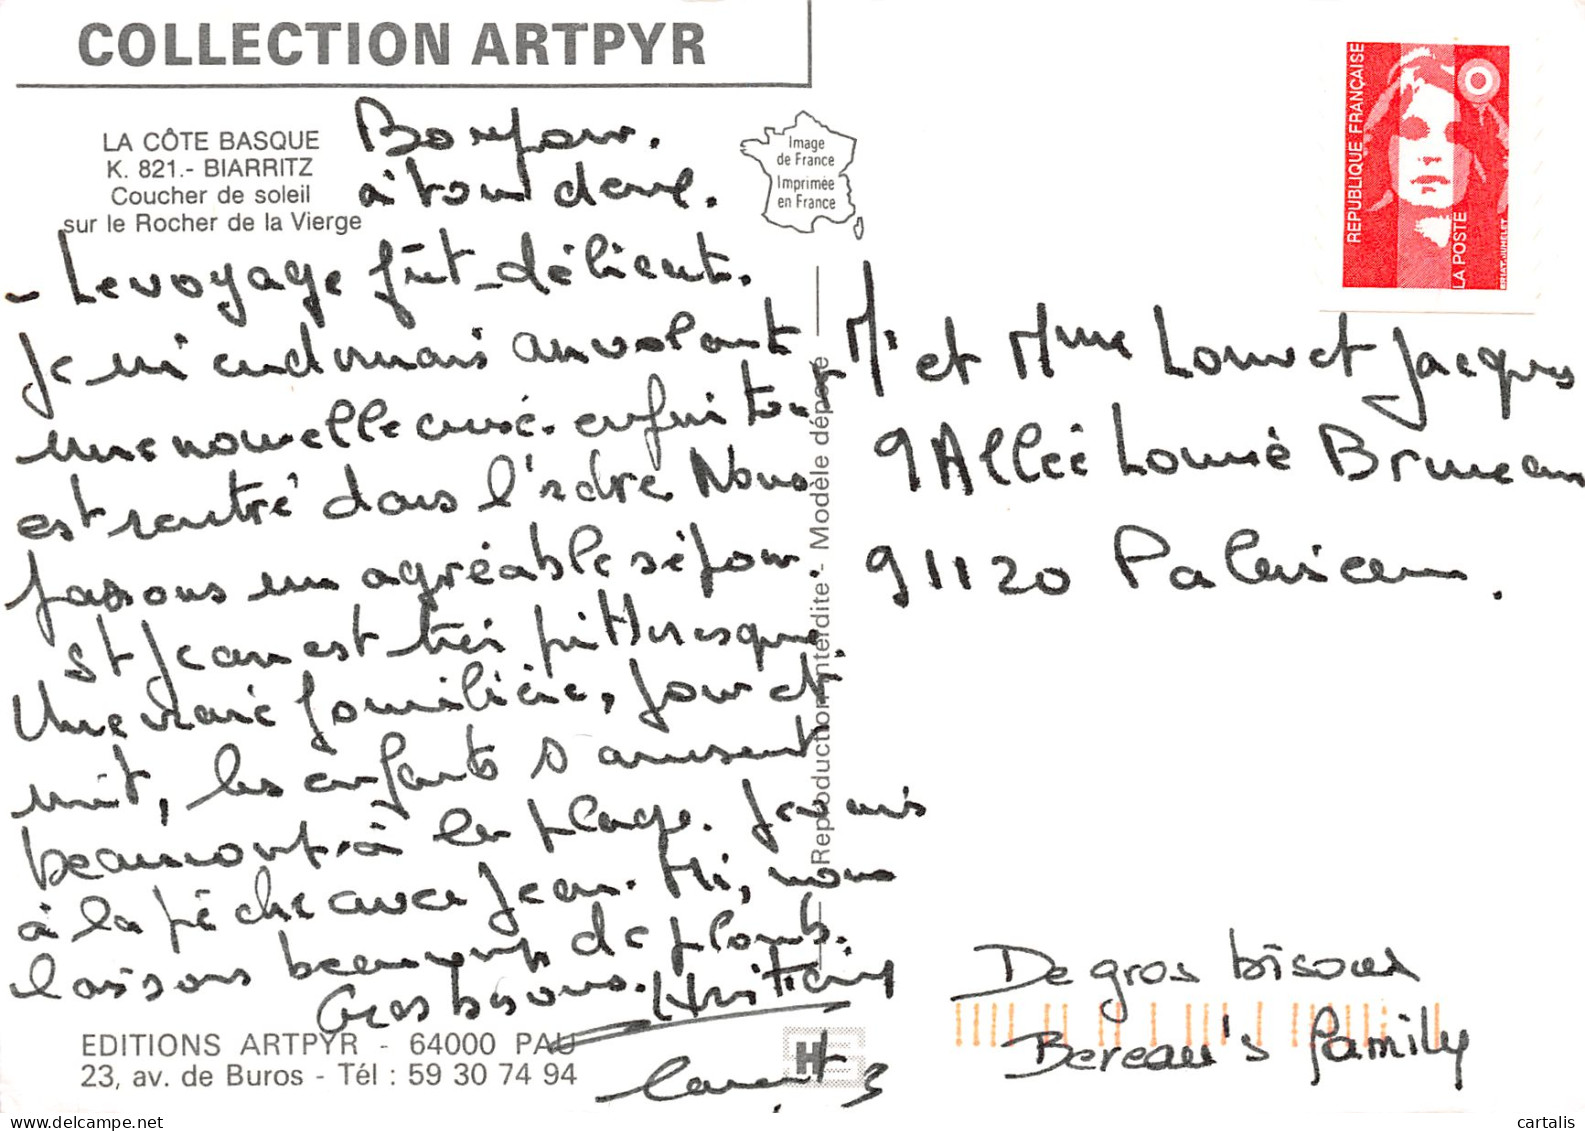 COLLECTION ARTPYR
LA CÔTE BASQUE
K. 821.- BIARRITZ
Coucher de soleil
sur le Rocher de la Vierge
Image
de France
Imprimée
en France
REPUBLIQUE FRANÇAISE
LA POSTE
Bonjour.
à tous deux.
- Le voyage fût délicat.
Je m'endormais au volant
une nouvelle cure. enfin tout
est rentré dans l'ordre Nous
faisons un agréable séjour
St Jean est très pittoresque
Une vraie familière, jour et
nuit, les enfants s'amusent
beaucoup à la plage. Je vais
à la pêche avec Jean. Mi, nous
laissons beaucoup de plomb.
Gros bisous.
Laurent
Reproduction interdite - Modèle déposé
M. et Mme Louvet Jacques
9 Allée Louise Bruneau
91120 Palaiseau.
De gros bisous
Bereau's family
EDITIONS ARTPYR - 64000 PAU
23, av. de Buros - Tél : 59 30 74 94
cartalis